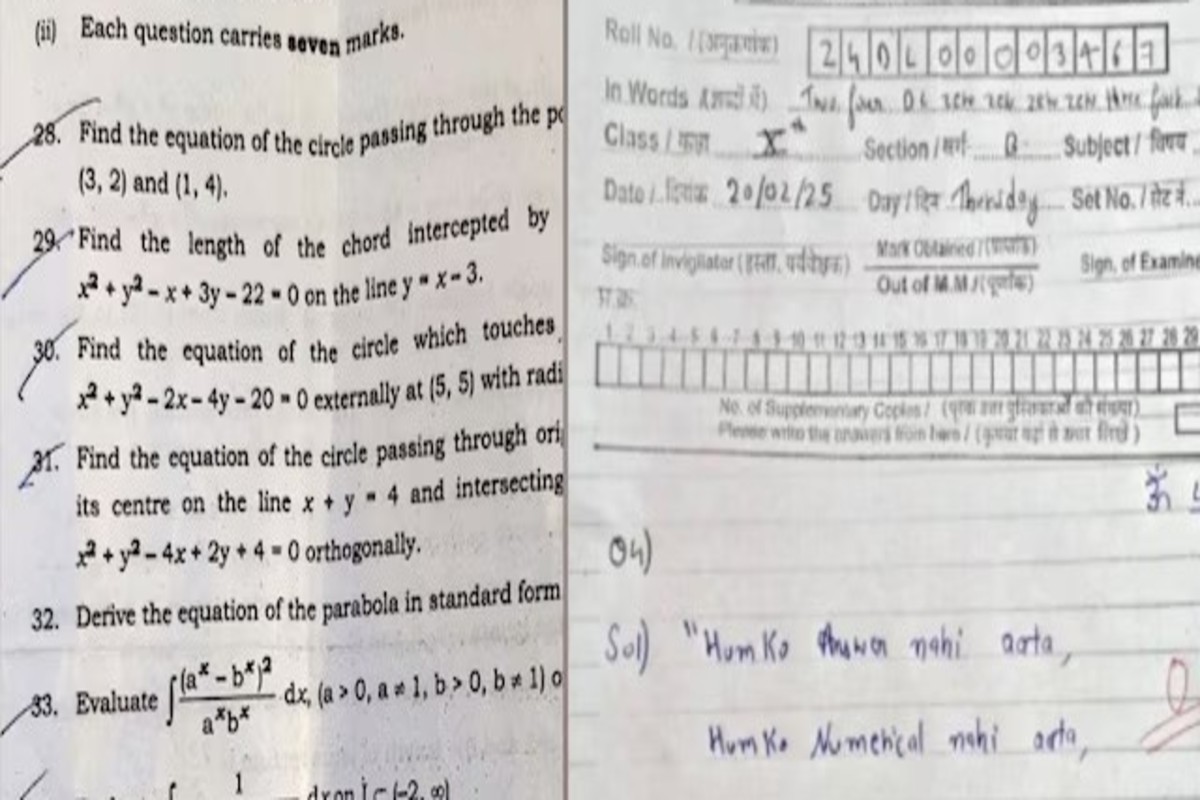 (ii) Each question carries seven marks.
28. Find the equation of the circle passing through the
(3, 2) and (1, 4).
29. Find the length of the chord intercepted by
x² + y² – x + 3y – 22 = 0 on the line y = x – 3.
30. Find the equation of the circle which touches
x² + y² – 2x – 4y – 20 = 0 externally at (5, 5) with radi
31. Find the equation of the circle passing through ori
its centre on the line x + y = 4 and intersecting
x² + y² – 4x + 2y + 4 = 0 orthogonally.
32. Derive the equation of the parabola in standard form
33. Evaluate ∫ (aˣ – bˣ)² / aˣbˣ dx, (a > 0, a ≠ 1, b > 0, b ≠ 1) o
∫ 1 dx on I ⊂ (–2, ∞)
Roll No. / (अनुक्रमांक) 24DL00003467
In Words / (शब्दों में) Two four DL zero zero zero zero three four
Class / कक्षा X Section / वर्ग B Subject / विषय
Date / दिनांक 20/02/25 Day / दिन Thursday Set No. / सेट नं.
Sign. of Invigilator (हस्ता. पर्यवेक्षक) Mark Obtained / (प्राप्तांक) Sign. of Examine
Out of M.M / (पूर्णांक)
1 2 3 4 5 6 7 8 9 10 11 12 13 14 15 16 17 18 19 20 21 22 23 24 25 26 27 28 29
No. of Supplementary Copies / (पूरक उत्तर पुस्तिकाओं की संख्या)
Please write the answers from here / (कृपया यहां से उत्तर लिखें)
ॐ
Q4)
Sol) "Hum Ko Answer nahi aata,
0
Hum Ko Numerical nahi aata,